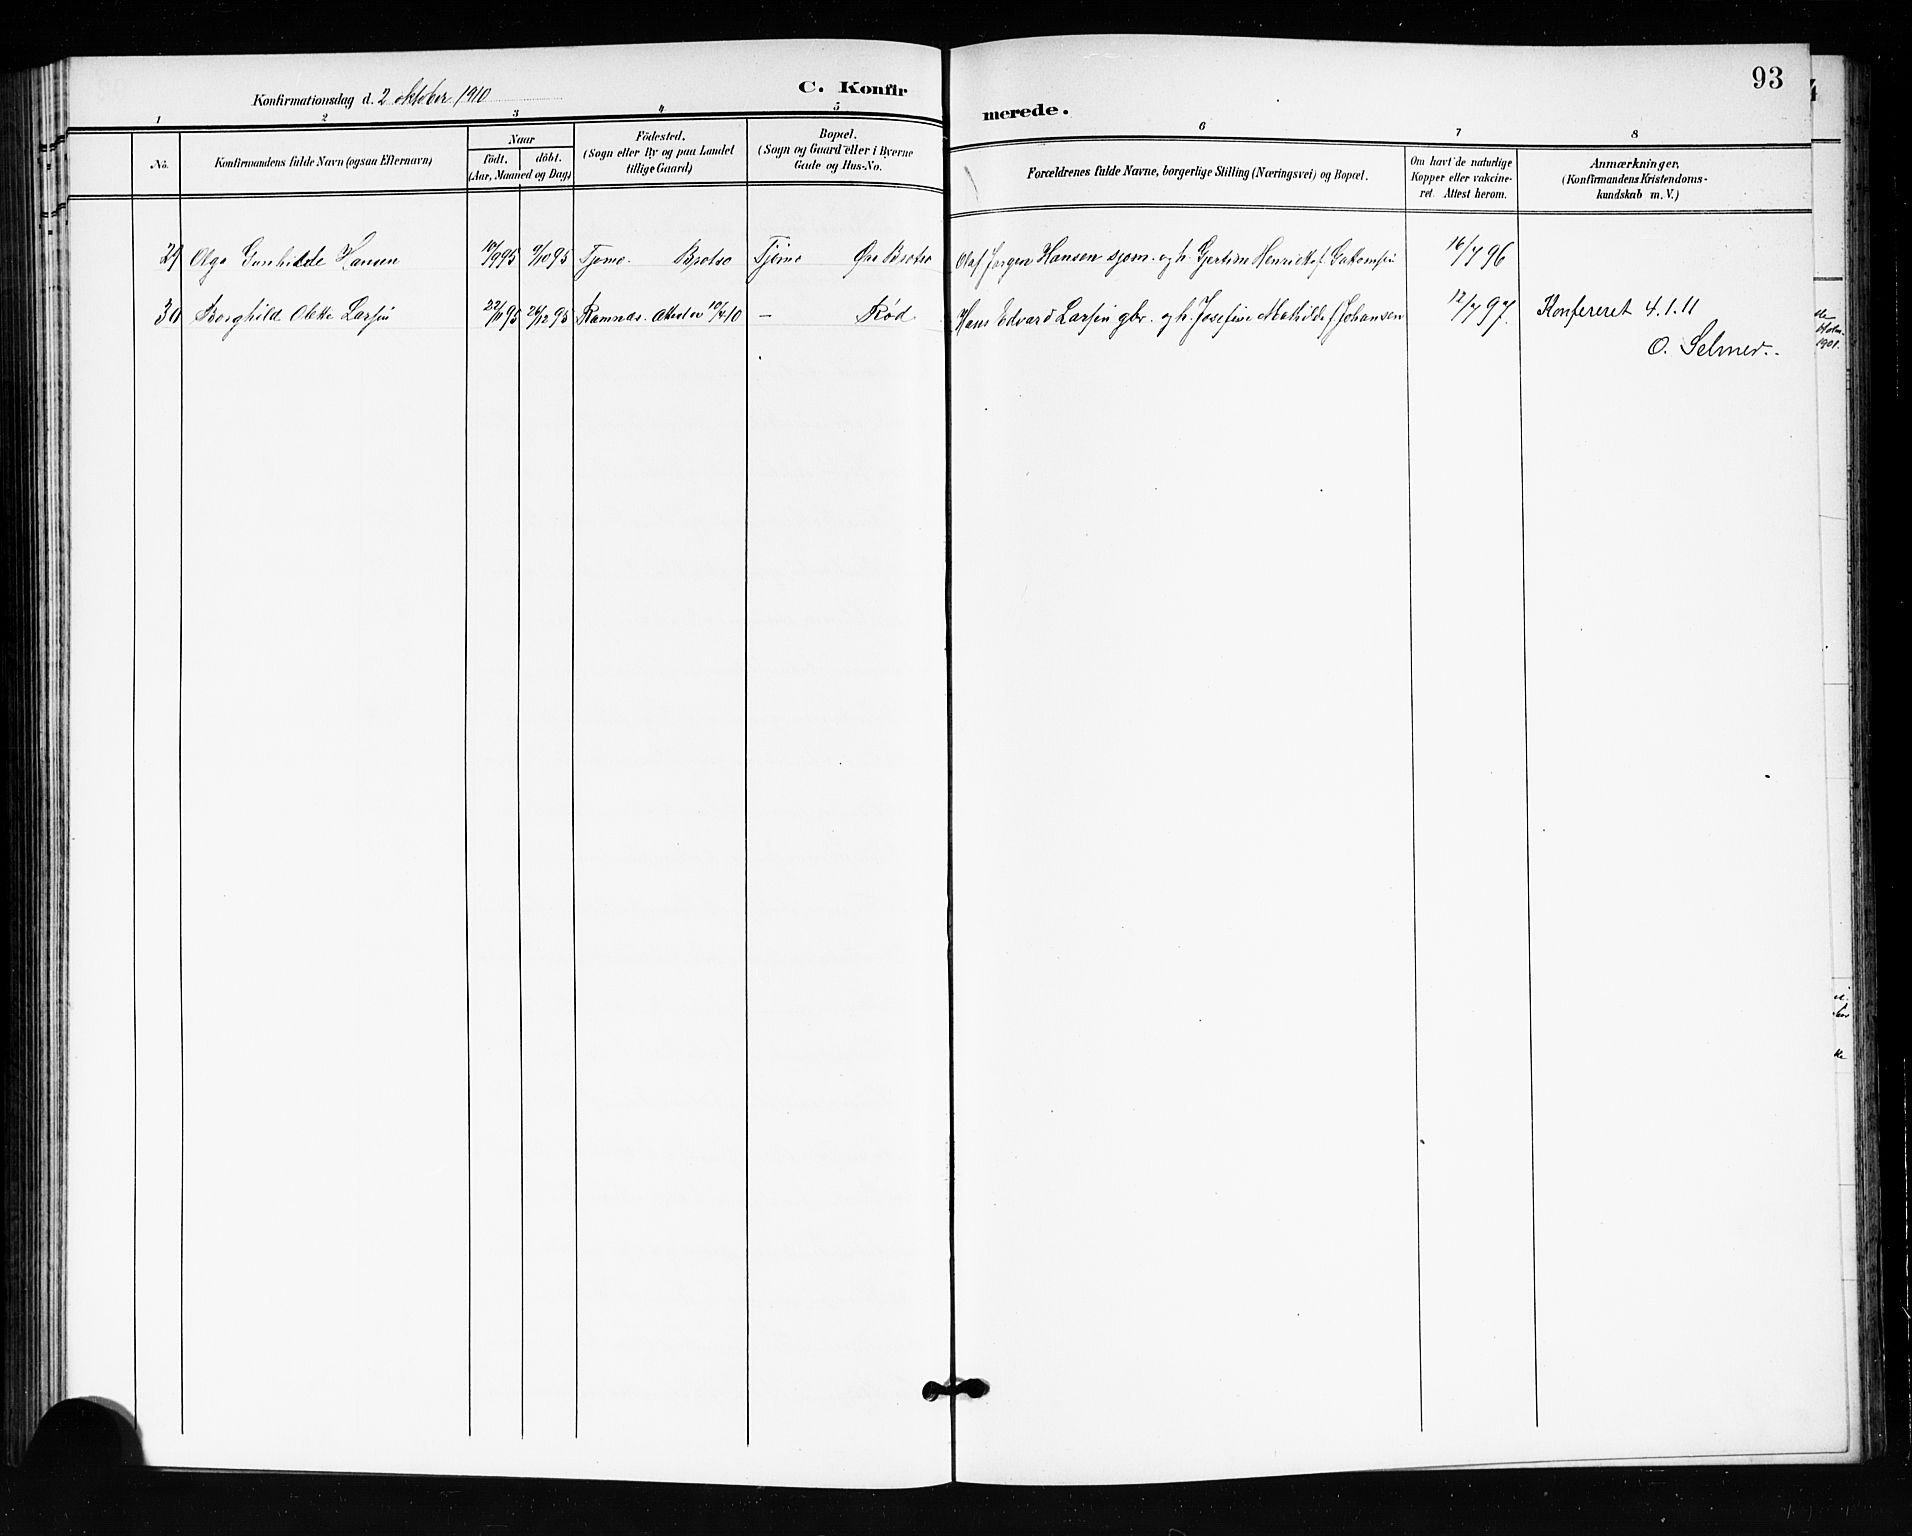 Konfirmationsdag d. 2 oktober 1910
C. Konfirmerede.
93
1 2 3 4 5 6 7 8
No.
Konfirmandens fulde Navn (ogsaa Efternavn)
Naar
födt. döbt.
(Aar, Maaned og Dag)
Födested.
(Sogn eller By og paa Landet
tillige Gaard)
Bopæl.
(Sogn og Gaard eller i Byerne
Gade og Hus-No.
Forældrenes fulde Navne, borgerlige Stilling (Næringsvei) og Bopæl.
Om havt de naturlige
Kopper eller vakcine-
ret. Attest herom.
Anmærkninger,
(Konfirmandens Kristendoms-
kundskab m. V.)
29 Olga Gunhilde Hansen 10/9 95 9/10 95 Tjømø. Brøtsø Tjømø Øre Brøtsø Olaf Jørgen Hansen sjøm. og h. Gjertine Henriette f. 16/7 96
30 Borghild Olette Larsen 22/11 95 26/12 95 Ramnæs. Attest av 10/4 10 — Rød Hans Edvard Larsen gbr. og h. Josefine Mathilde f. Johansen 12/7 97. Konfereret 4.1.11
O. Selmer.